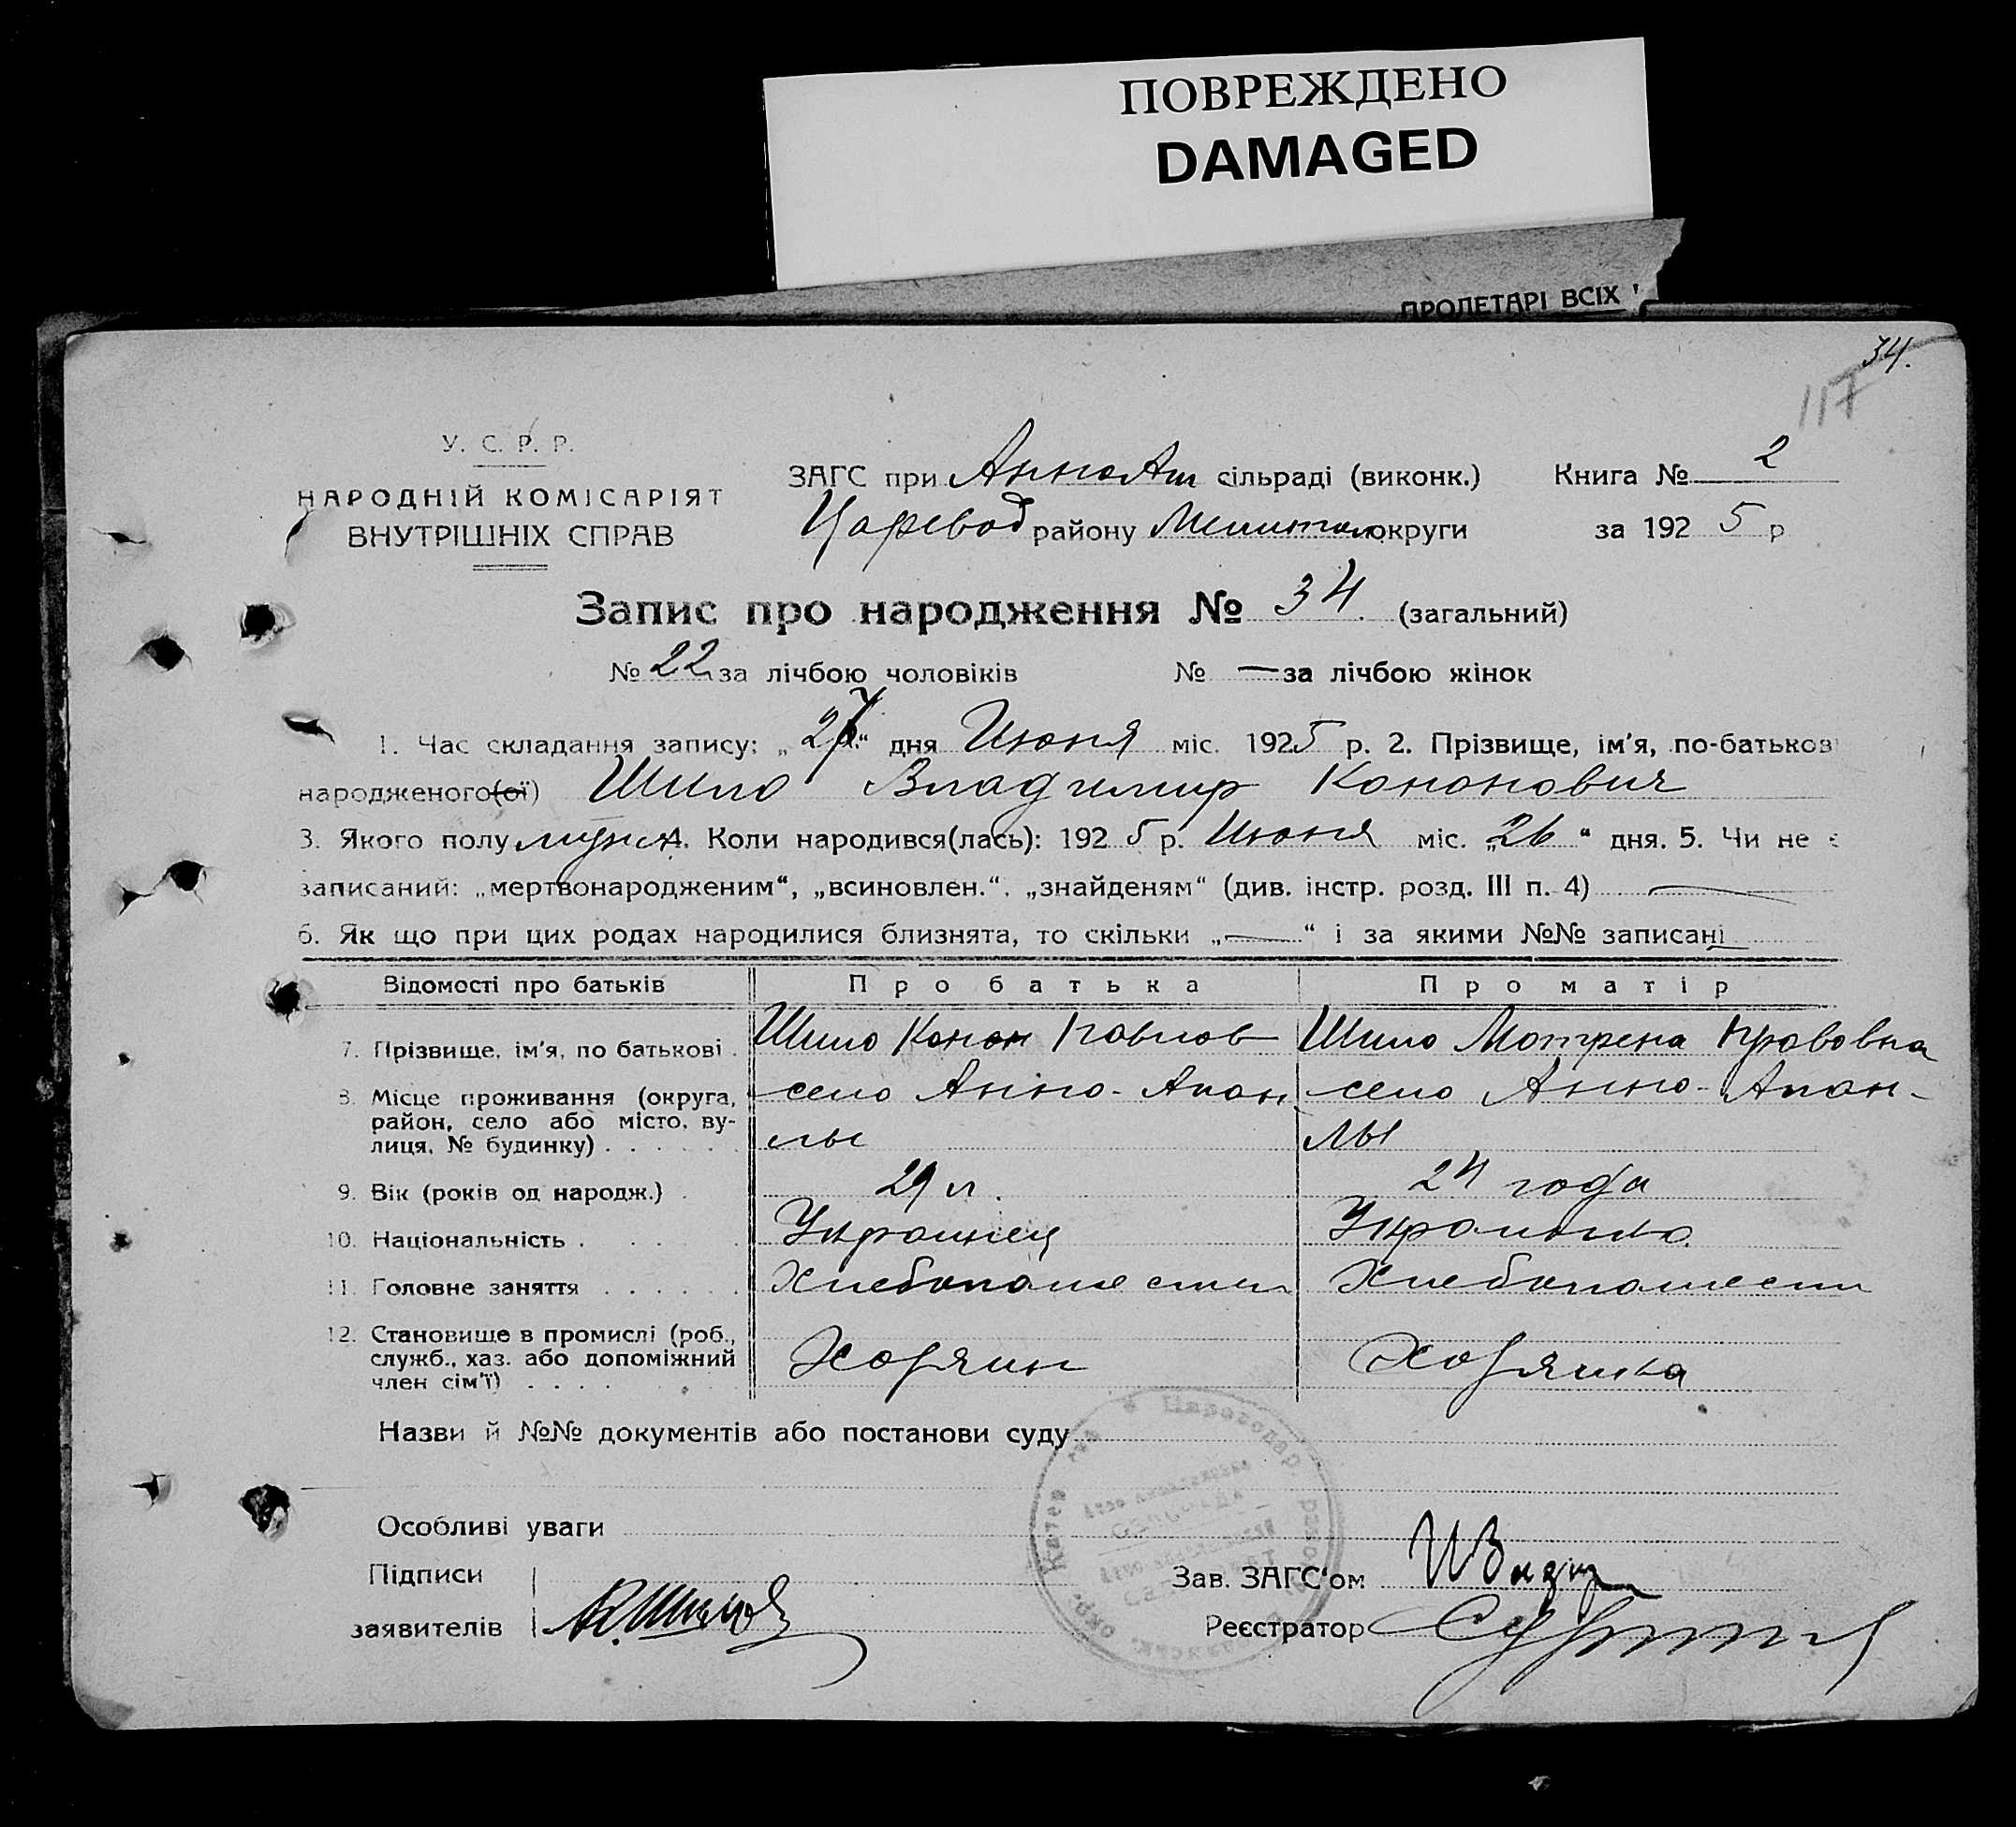 ПОВРЕЖДЕНО
DAMAGED
ПРОЛЕТАРІ ВСІХ
34.
117
У. С. Р. Р.
НАРОДНІЙ КОМІСАРІЯТ
ВНУТРІШНІХ СПРАВ
ЗАГС при АнноАп сільраді (виконк.) Книга № 2
Царевод району округи за 192 5 р
Запис про народження № 34. (загальний)
№ 22 за лічбою чоловіків № — за лічбою жінок
1. Час складання запису: „27“ дня Июня міс. 1925 р. 2. Прізвище, ім'я, по-батькові
народженого(ої) Шило Владимир Кононович
3. Якого полу мужс 4. Коли народився(лась): 192 5 р. Июня міс. „26“ дня. 5. Чи не є
записаний: „мертвонародженим“, „всиновлен.“, „знайденям“ (див. інстр. розд. III п. 4) —
6. Як що при цих родах народилися близнята, то скільки „—“ і за якими №№ записані
Відомості про батьків Про батька Про матір
7. Прізвище, ім'я, по батькові . Шило Конон Павлов Шило Мотрена
8. Місце проживання (округа, район, село або місто, вулиця, № будинку) . . . . . . село Анно-Апан- село Анно-Апан-
лы лы
9. Вік (років од народж.) . 29 л. 24 года
10. Національність . . . . Украинец Украинка
11. Головне заняття . . . . . . Хлебопашеств Хлебопашеств
12. Становище в промислі (роб., служб., хаз. або допоміжний член сім'ї) . . . . Хозяин Хозяйка
Назви й №№ документів або постанови суду
Особливі уваги
Підписи
заявителів
К. Шилов
Зав. ЗАГС'ом
Реєстратор